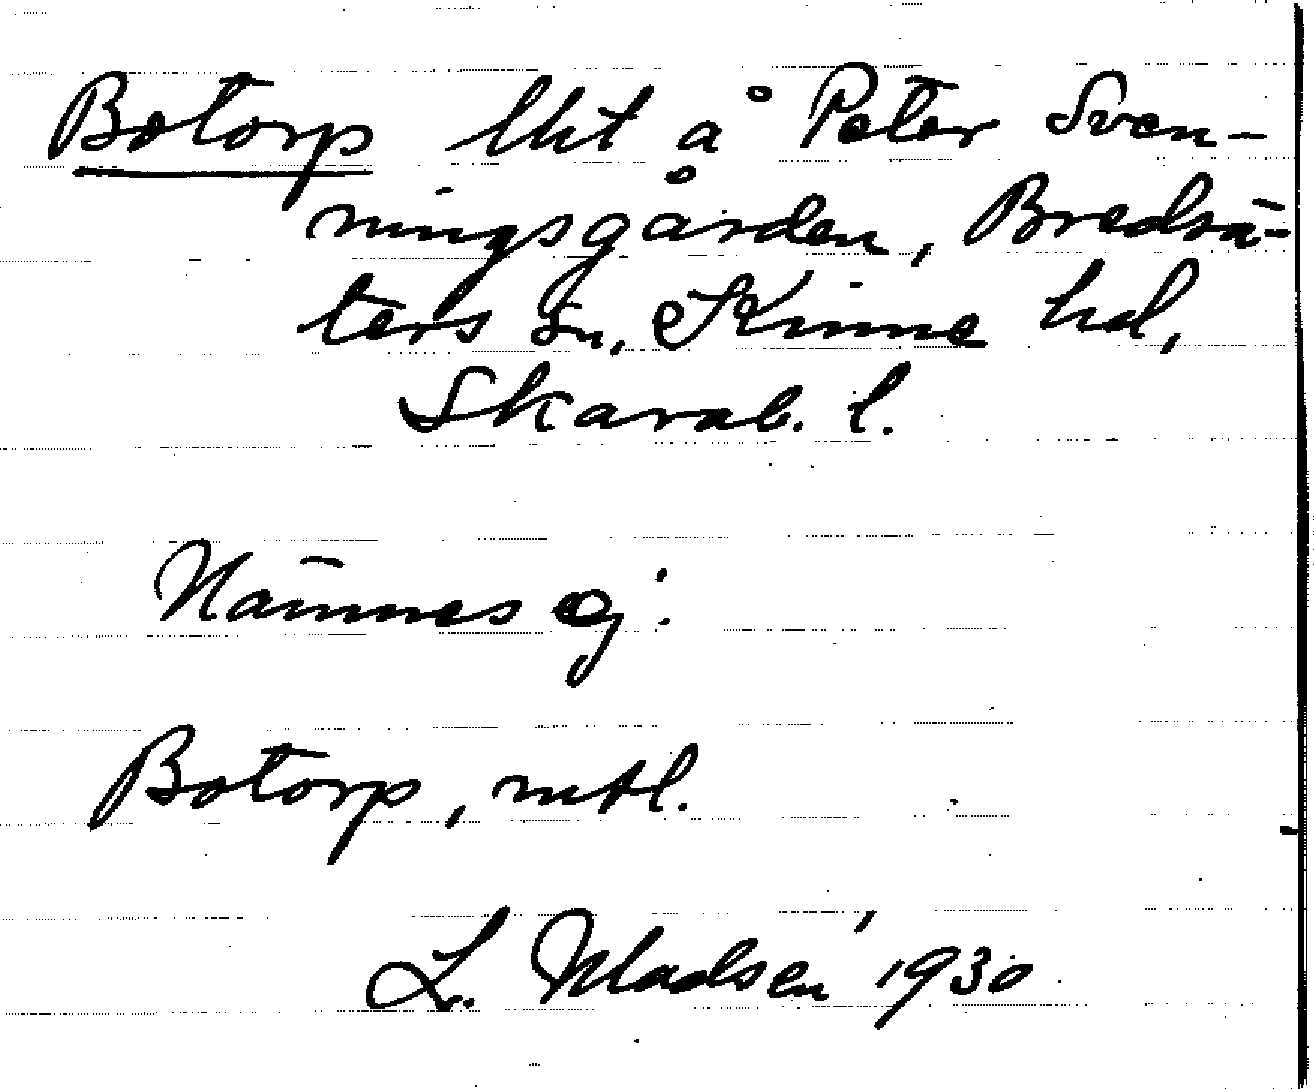 Botorp lht å Peter Sven-
ningsgården, Bredsä-
ters sn, Kinne hd,
Skarab. l.
Nämnes ej.
Botorp, mtl.
L. Madsén 1930